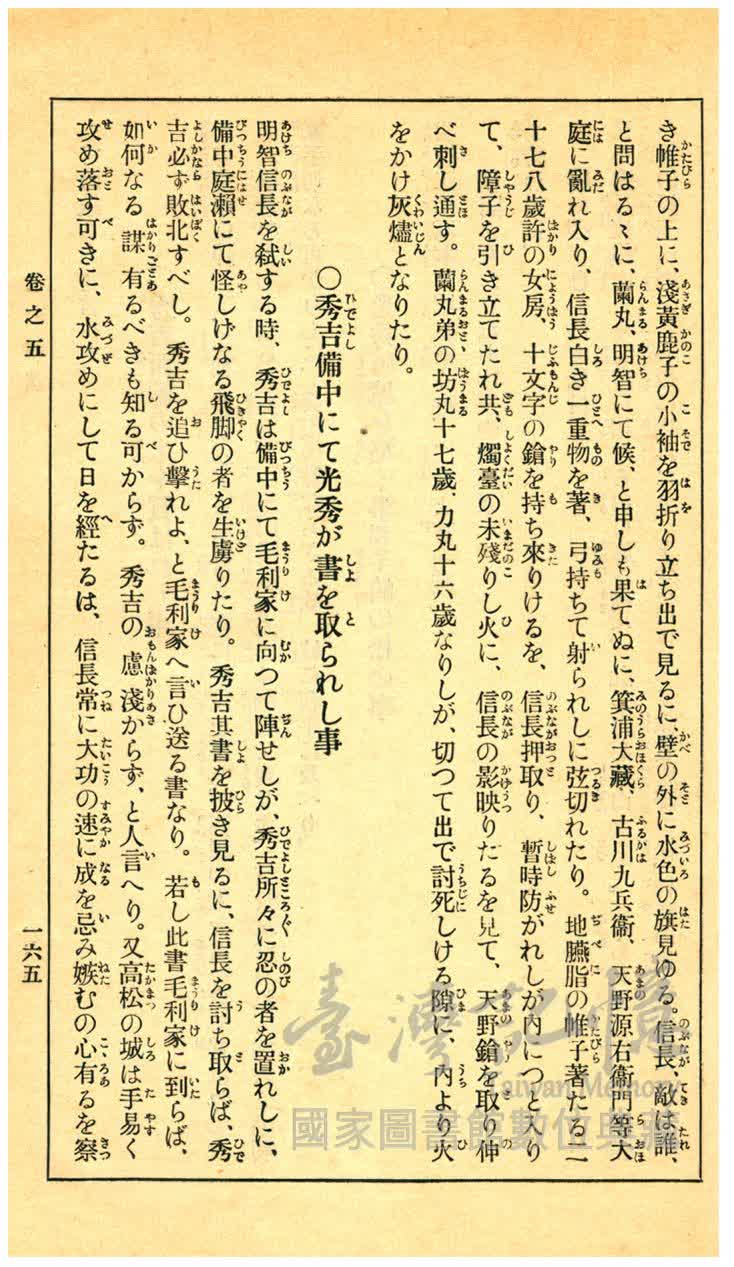 き帷子の上に、淺黃鹿子の小袖を羽折り立ち出で見るに、壁の外に水色の旗見ゆる。信長、敵は誰、
と問はる〻に、蘭丸、明智にて候、と申しも果てぬに、箕浦大藏、古川九兵衞、天野源右衞門等大
庭に亂れ入り、信長白き一重物を著、弓持ちて射られしに弦切れたり。地臙脂の帷子著たる二
十七八歲許の女房、十文字の鎗を持ち來りけるを、信長押取り、暫時防がれしが內につと入り
て、障子を引き立てたれ共、燭臺の未殘りし火に、信長の影映りたるを見て、天野鎗を取り伸
べ刺し通す。蘭丸弟の坊丸十七歲、力丸十六歲なりしが、切つて出で討死しける隙に、內より火
をかけ灰燼となりたり。
〇秀吉備中にて光秀が書を取られし事
明智信長を弑する時、秀吉は備中にて毛利家に向つて陣せしが、秀吉所々に忍の者を置れしに、
備中庭瀨にて怪しげなる飛脚の者を生虜りたり。秀吉其書を披き見るに、信長を討ち取らば、秀
吉必ず敗北すべし。秀吉を追ひ擊れよ、と毛利家へ言ひ送る書なり。若し此書毛利家に到らば、
如何なる謀有るべきも知る可からず。秀吉の慮淺からず、と人言へり。又高松の城は手易く
攻め落す可きに、水攻めにして日を經たるは、信長常に大功の速に成を忌み嫉むの心有るを察
卷之五
一六五
臺灣記憶
Taiwan Memory
國家圖書館數位典藏